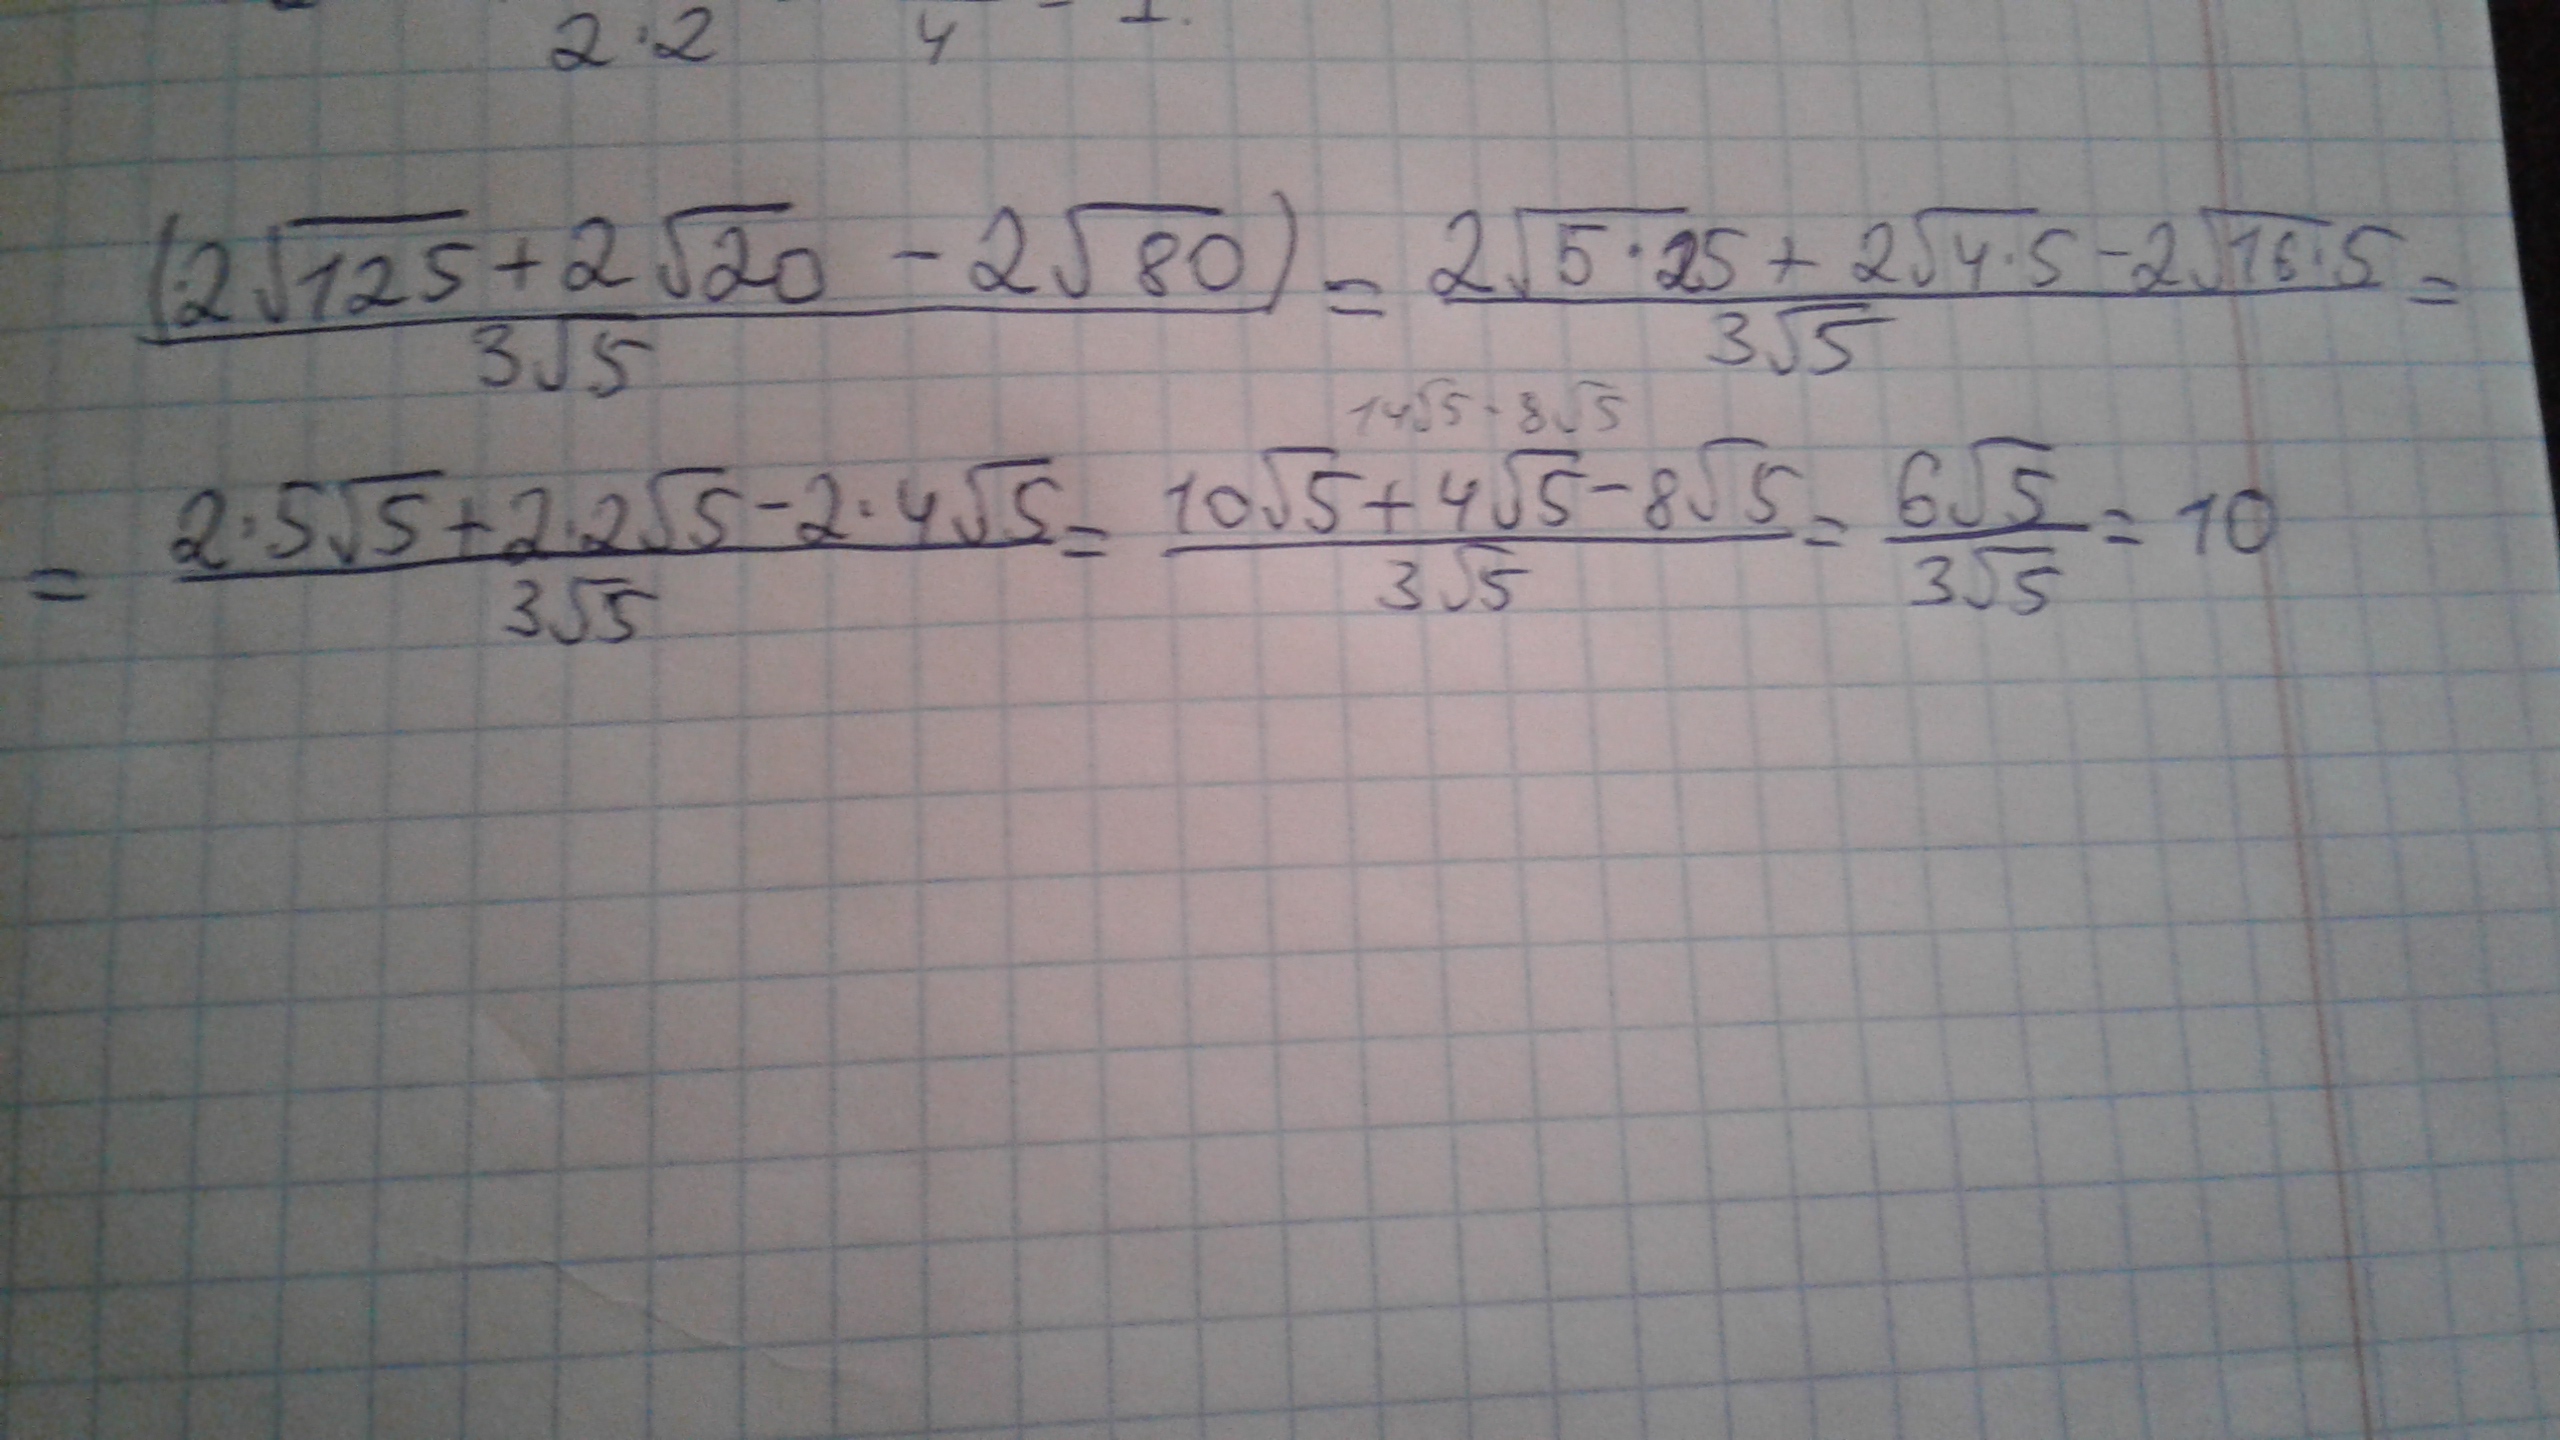 2·2 4 - 1.
(2√125 + 2√20 - 2√80) = 2√5·25 + 2√4·5 - 2√16·5 =
3√5 3√5
14√5 - 8√5
= 2·5√5 + 2·2√5 - 2·4√5 = 10√5 + 4√5 - 8√5 = 6√5 = 10
3√5 3√5 3√5